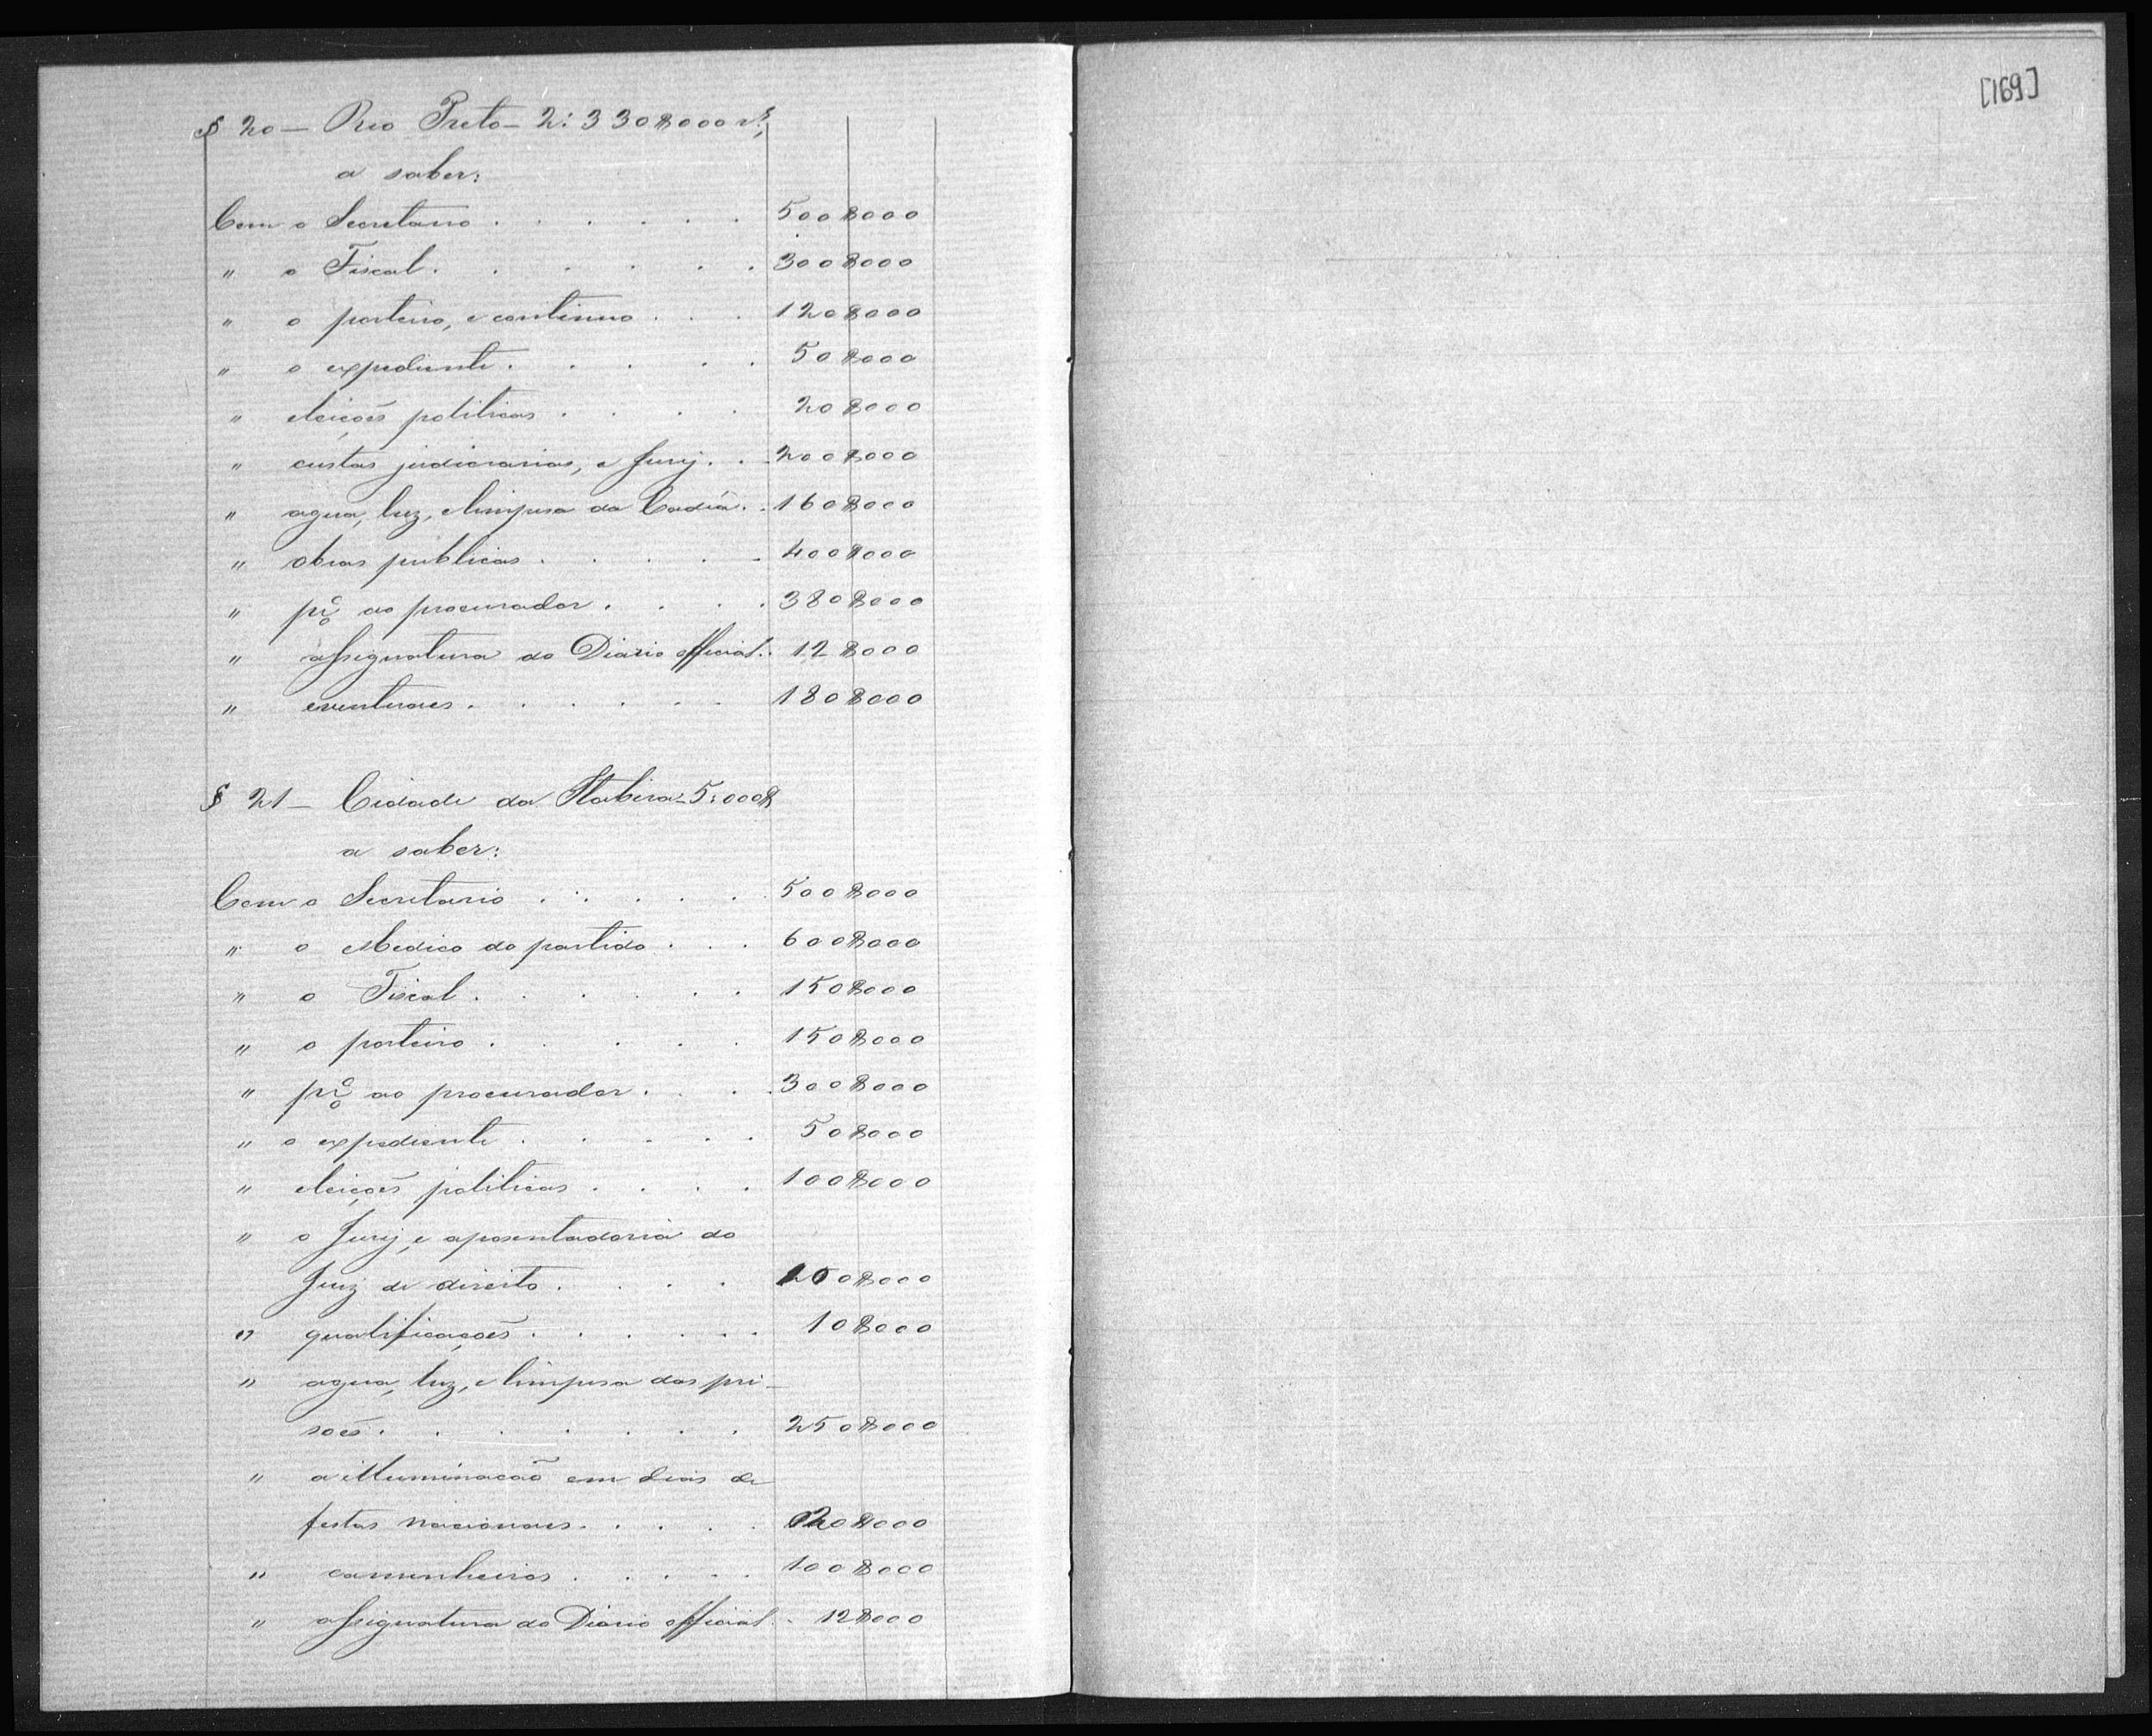 [169]
§ 20 — Rio Preto — 2:330$000 rs,
a saber:
Com o Secretario . . . . . . 500$000
" o Fiscal . . . . . . 300$000
" o porteiro, e continuo . . . 120$000
" o expediente . . . . . 50$000
" eleições politicas . . . . 20$000
" custas judiciarias, e Jury . . 200$000
" agua, luz, e limpesa da Cadia . . 160$000
" obras publicas . . . . . 400$000
" prc.o ao procurador . . . . 380$000
" assignatura do Diario official . . 12$000
" eventuaes . . . . . . 180$000
§ 21 — Cidade da Itabira — 5:000$
a saber:
Com o Secretario . . . . . . 500$000
" o Medico do partido . . . 600$000
" o Fiscal . . . . . . 150$000
" o porteiro . . . . . 150$000
" prc.o ao procurador . . . . 300$000
" o expediente . . . . . 50$000
" eleições politicas . . . . 100$000
" o Jury, e aposentadoria do
Juiz de direito . . . . 100$000
" qualificações . . . . . . 10$000
" agua, luz, e limpesa das pri-
soēs . . . . . . . 250$000
" a illuminacaõ em dias de
festas nacionaes . . . . . 20$000
" caminheiros . . . . . 100$000
" assignatura do Diario official . . 12$000